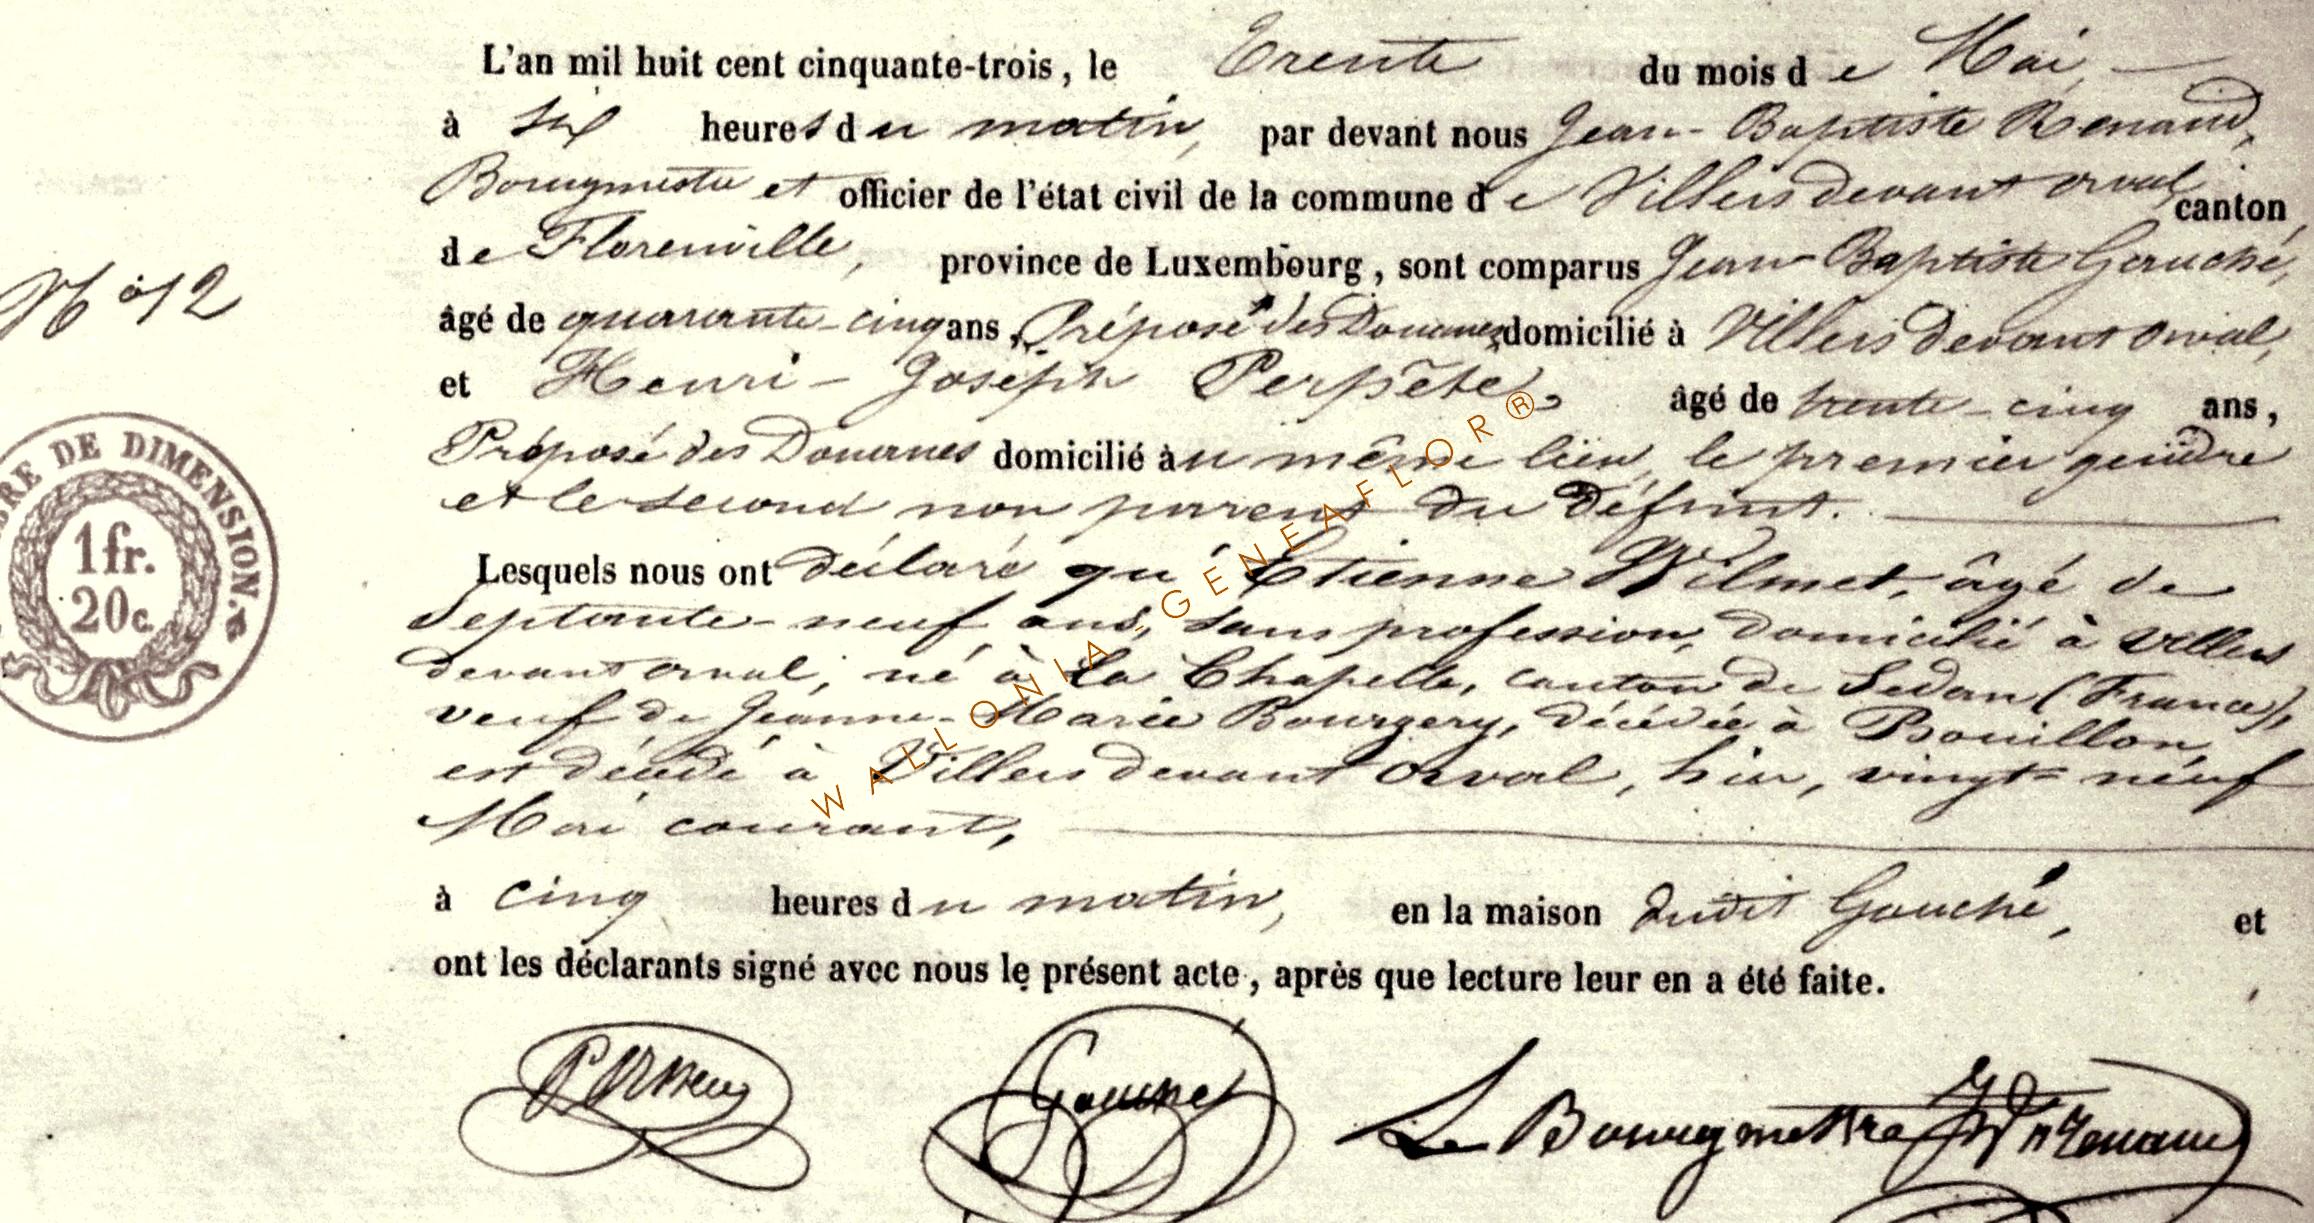 L'an mil huit cent cinquante-trois, le Trente du mois de Mai
à six heures du matin, par devant nous Jean-Baptiste Renaud,
Bourgmestre et officier de l'état civil de la commune de Villers devant orval, canton
de Florenville, province de Luxembourg, sont comparus Jean-Baptiste Gauché,
âgé de quarante-cinq ans, Préposé des Douanes, domicilié à Villers devant orval,
N° 12
et Henri-Joseph Perpête, âgé de trente-cinq ans,
Préposé des Douanes domicilié au même lieu, le premier gendre
et le second non parent du défunt.
Lesquels nous ont déclaré qu'Étienne Wilmet, âgé de
septante-neuf ans, sans profession, domicilié à Villers
devant orval, né à La Chapelle, canton de Sedan (France),
veuf de Jeanne-Marie Bourgery, décédée à Bouillon,
est décédé à Villers devant orval, hier, vingt-neuf
Mai courant,
à cinq heures du matin, en la maison dudit Gauché, et
ont les déclarants signé avec nous le présent acte, après que lecture leur en a été faite.
Le Bourgmestre
DE DIMENSION.
1fr.
20c.
WALLONIA-GENEAFLOR®